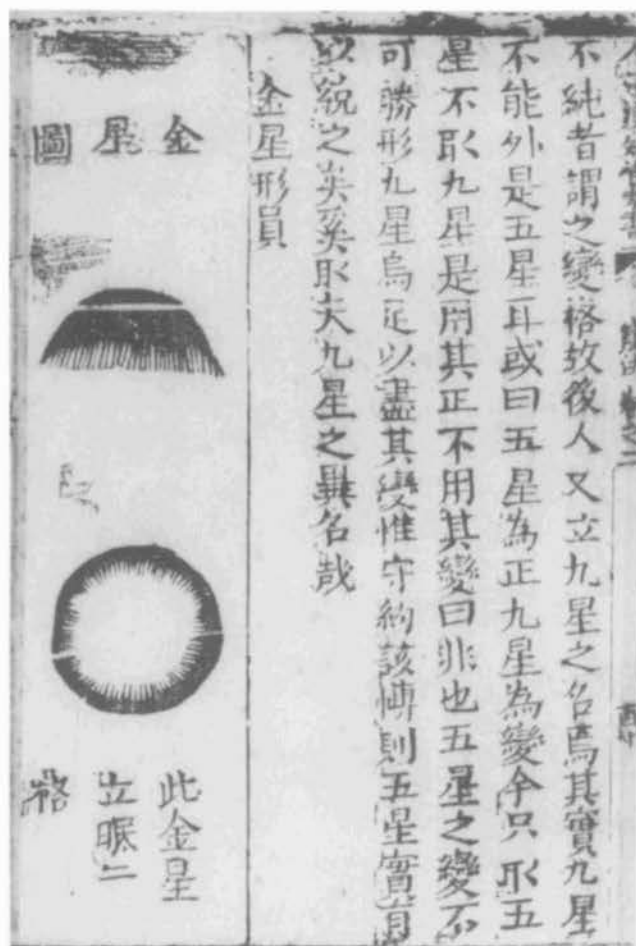 不純者謂之變格故後人又立九星之名焉其實九星
不能外是五星耳或曰五星為正九星為變今只取五
星不取九星是用其正不用其變曰非也五星之變不
可勝形九星烏足以盡其變惟守約該博則五星實有
以統之矣奚取夫九星之異名哉
金星形員
金星圖
此金星
立眠二
格